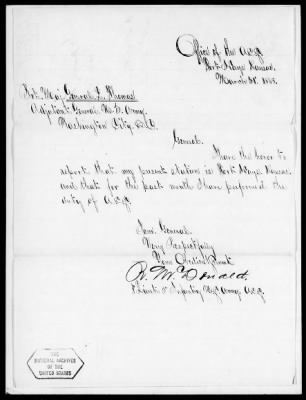 Office of the A.C.S.
Fort Hays Kansas.
March 31st 1868.
Bvt. Maj. General L. Thomas
Adjutant General U.S. Army.
Washington City D.C.
General.
I have the honor to
report that my present station is Fort Hays Kansas.
and that for the past month I have performed the
duty of A.C.S.
I am General.
Very Respectfully
Your Obedient Servant
R. McDonald.
Infantry U.S. Army A.C.S.
THE
NATIONAL ARCHIVES
OF THE
UNITED STATES